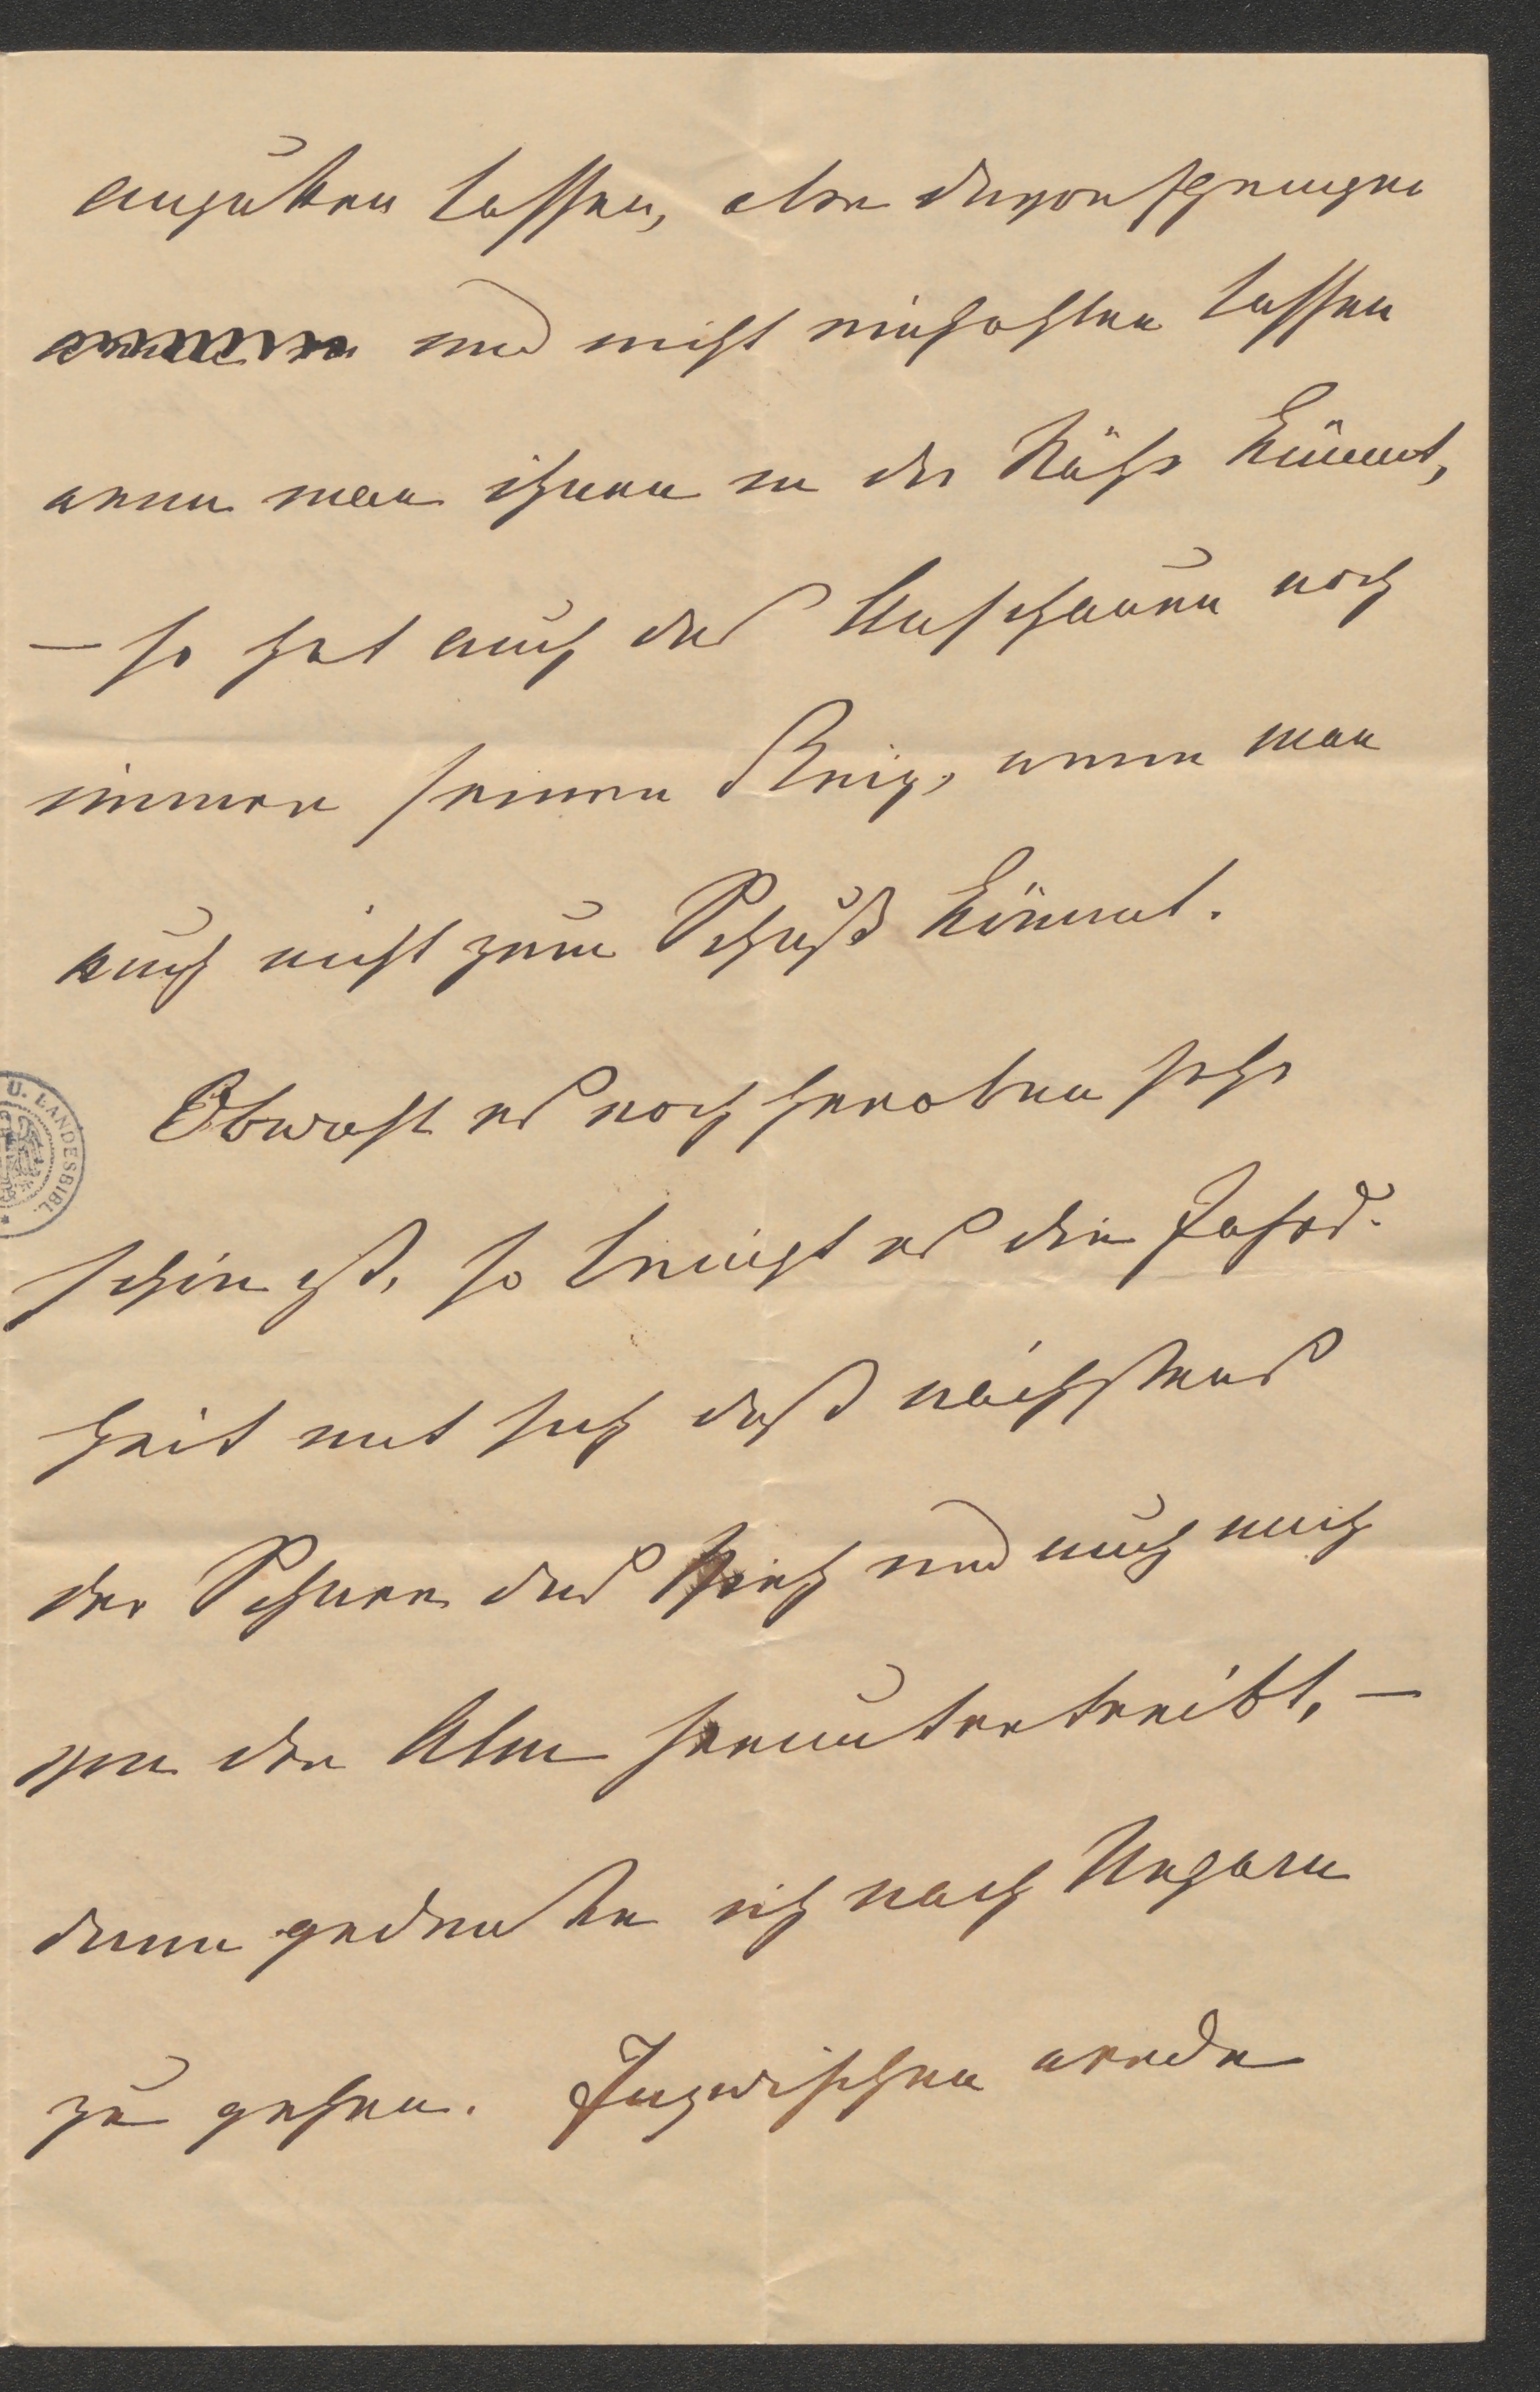 angucken lassen, aber davonspringen
und nicht einholen lassen
wenn man ihnen in die Nähe kömmt,
— so hat auch das Anschauen noch
immer seinen Reiz, wenn man
auch nicht zum Schuß kömmt.
Obwohl es noch heroben sehr
schön ist, so bringt es die Jahres-
zeit mit sich daß nächstens
der Schnee das Vieh und auch mich
von der Alm heruntertreibt, —
dann gedenke ich nach Ungarn
zu gehen. Inzwischen werde
U. LANDESBIBL.